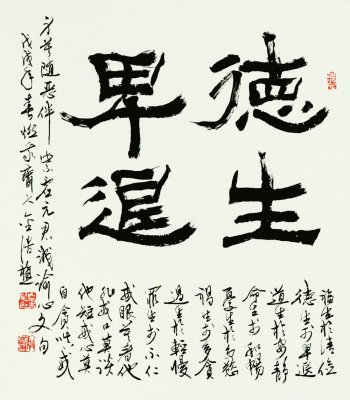 德生
卑退
福生於清儉
德生於卑退
道生於安靜
命生於和暢
憂生於多慾
禍生於多貪
過生於輕慢
罪生於不仁
戒眼莫看他
非戒口莫談
他短戒心莫
自貪嗔戒
身莫隨惡伴 紫虛元君誠諭心文句
戊戌年春 齋人金浩